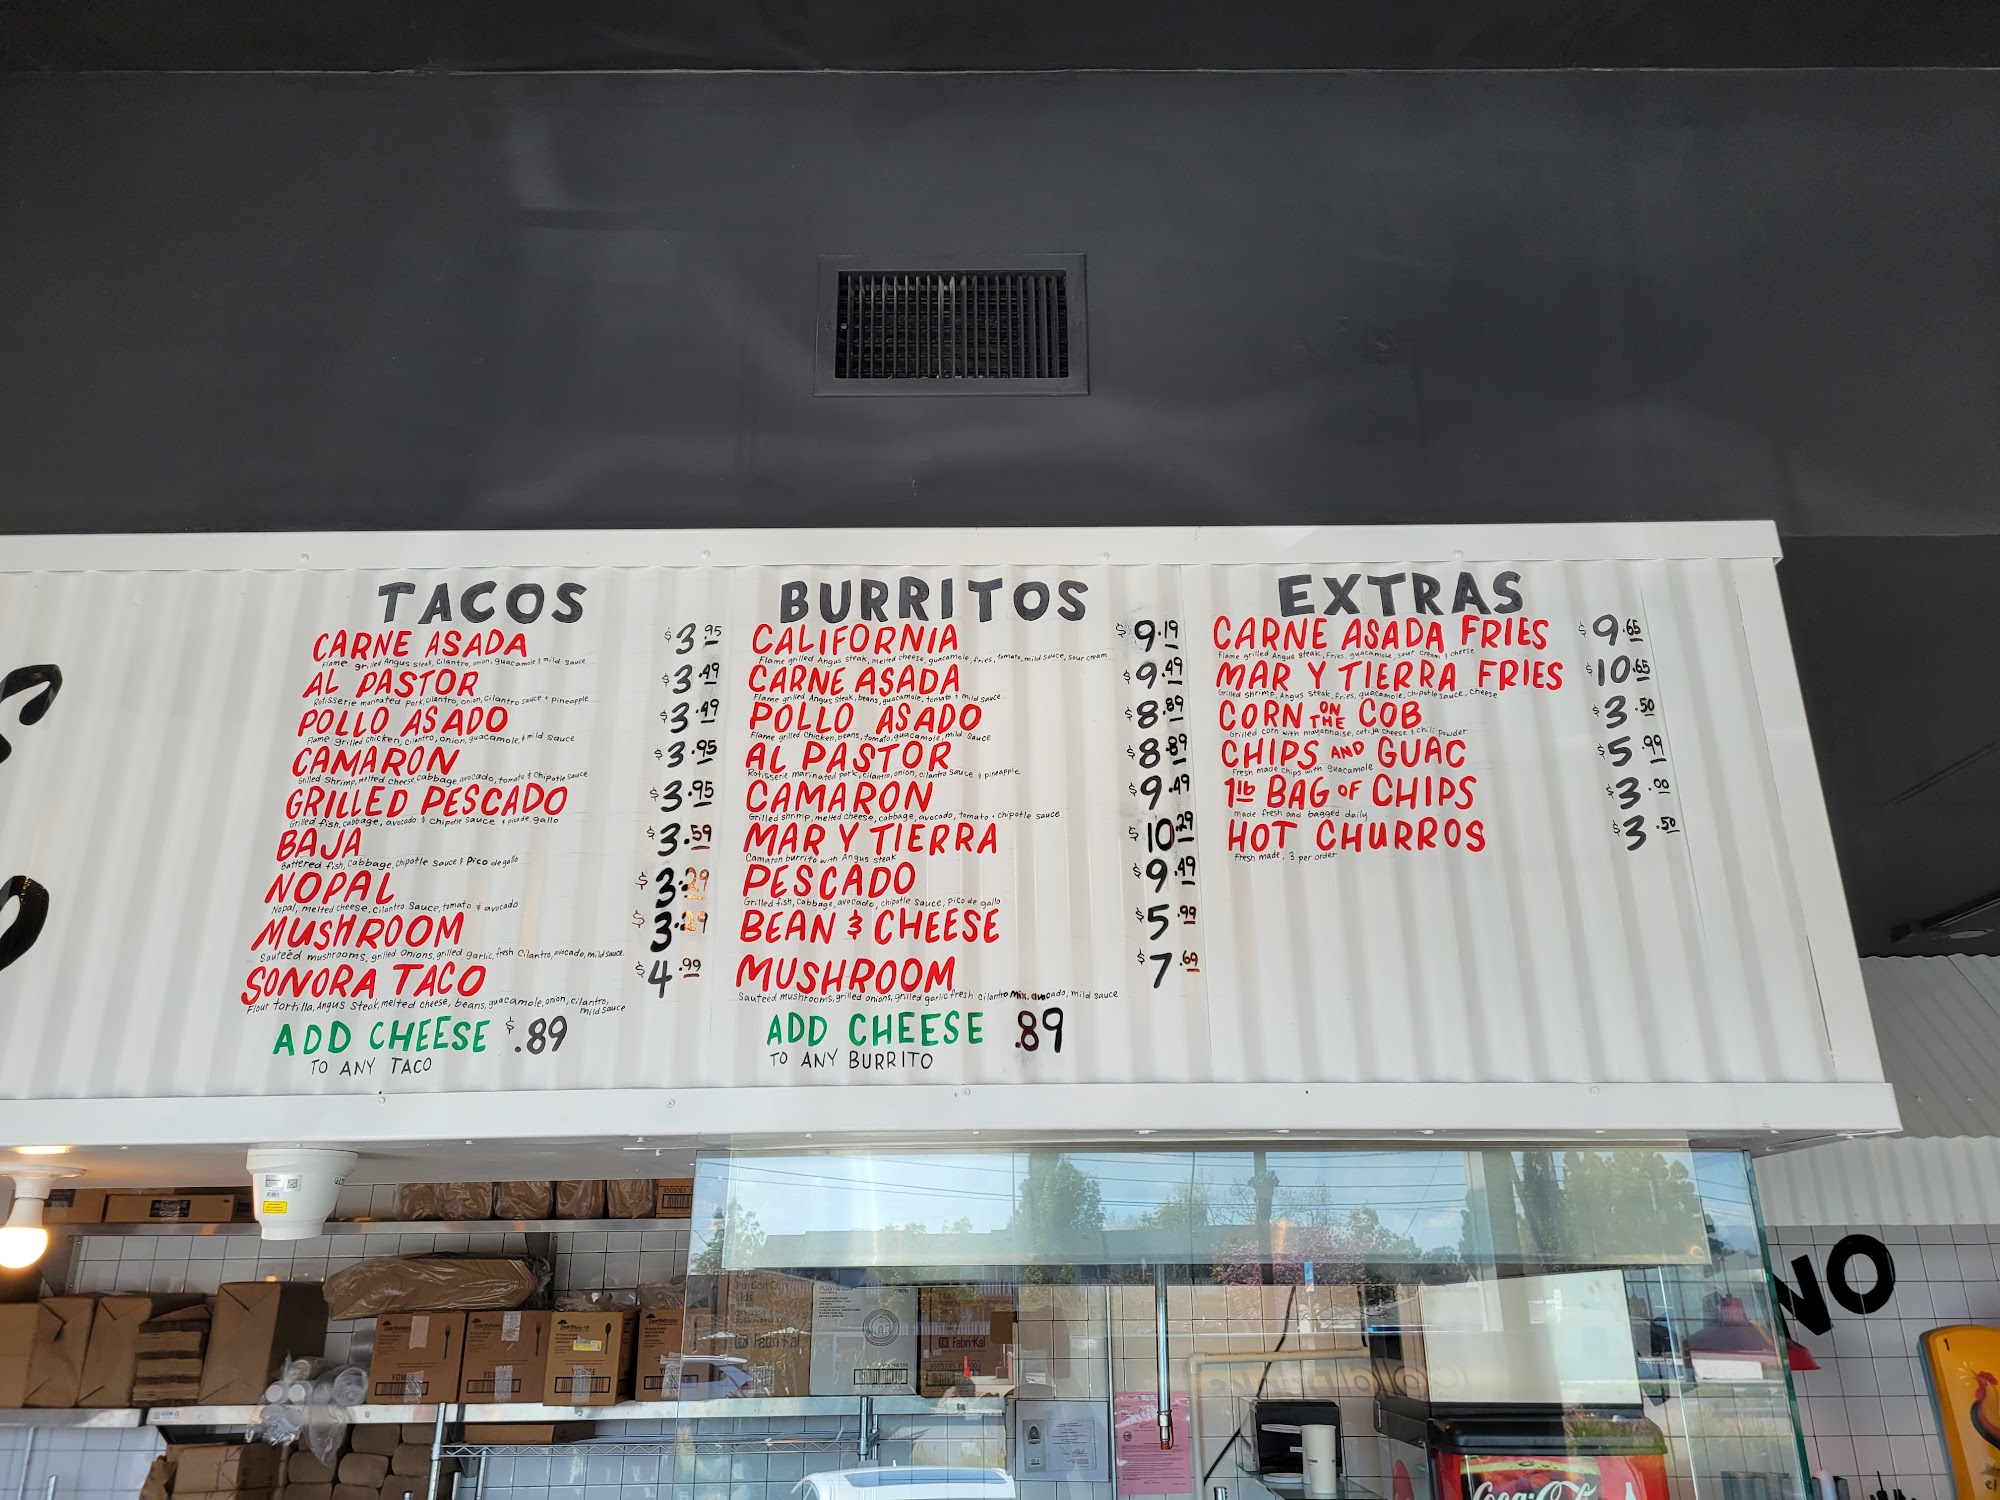 TACOS
CARNE ASADA $3.95
Flame grilled Angus steak, cilantro, onion, guacamole & mild sauce
AL PASTOR $3.49
Rotisserie marinated pork, cilantro, onion, cilantro sauce + pineapple
POLLO ASADO $3.49
Flame grilled chicken, cilantro, onion, guacamole, & mild sauce
CAMARON $3.95
Grilled shrimp, melted cheese, cabbage, avocado, tomato & chipotle sauce
GRILLED PESCADO $3.95
Grilled fish, cabbage, avocado & chipotle sauce + pico de gallo
BAJA $3.59
Battered fish, cabbage, chipotle sauce & Pico de gallo
NOPAL $3.29
Nopal, melted cheese, cilantro sauce, tomato & avocado
MUSHROOM $3.29
Sauteed mushrooms, grilled onions, grilled garlic, fresh cilantro, avocado, mild sauce
SONORA TACO $4.99
Flour tortilla, Angus steak, melted cheese, beans, guacamole, onion, cilantro,
mild sauce
ADD CHEESE $.89
TO ANY TACO
BURRITOS
CALIFORNIA $9.19
Flame grilled Angus steak, melted cheese, guacamole, fries, tomato, mild sauce, sour cream
CARNE ASADA $9.49
Flame grilled Angus steak, beans, guacamole, tomato & mild sauce
POLLO ASADO $8.89
Flame grilled chicken, beans, tomato, guacamole, mild sauce
AL PASTOR $8.89
Rotisserie marinated pork, cilantro, onion, cilantro sauce & pineapple
CAMARON $9.49
Grilled shrimp, melted cheese, cabbage, avocado, tomato + chipotle sauce
MAR Y TIERRA $10.29
Camaron burrito with Angus steak
PESCADO $9.49
Grilled fish, cabbage, avocado, chipotle sauce, pico de gallo
BEAN & CHEESE $5.99
MUSHROOM $7.69
Sauteed mushrooms, grilled onions, grilled garlic fresh cilantro mix, avocado, mild sauce
ADD CHEESE .89
TO ANY BURRITO
EXTRAS
CARNE ASADA FRIES $9.65
Flame grilled Angus steak, fries, guacamole, sour cream & cheese
MAR Y TIERRA FRIES $10.65
Grilled shrimp, Angus steak, fries, guacamole, chipotle sauce, cheese
CORN ON THE COB $3.50
Grilled corn with mayonnaise, cotija cheese & chili powder
CHIPS AND GUAC $5.99
Fresh made chips with guacamole
1lb BAG OF CHIPS $3.00
made fresh and bagged daily
HOT CHURROS $3.50
Fresh made, 3 per order
NO
Fabri-Kal
Fabri-Kal
Coca-Cola
1
el